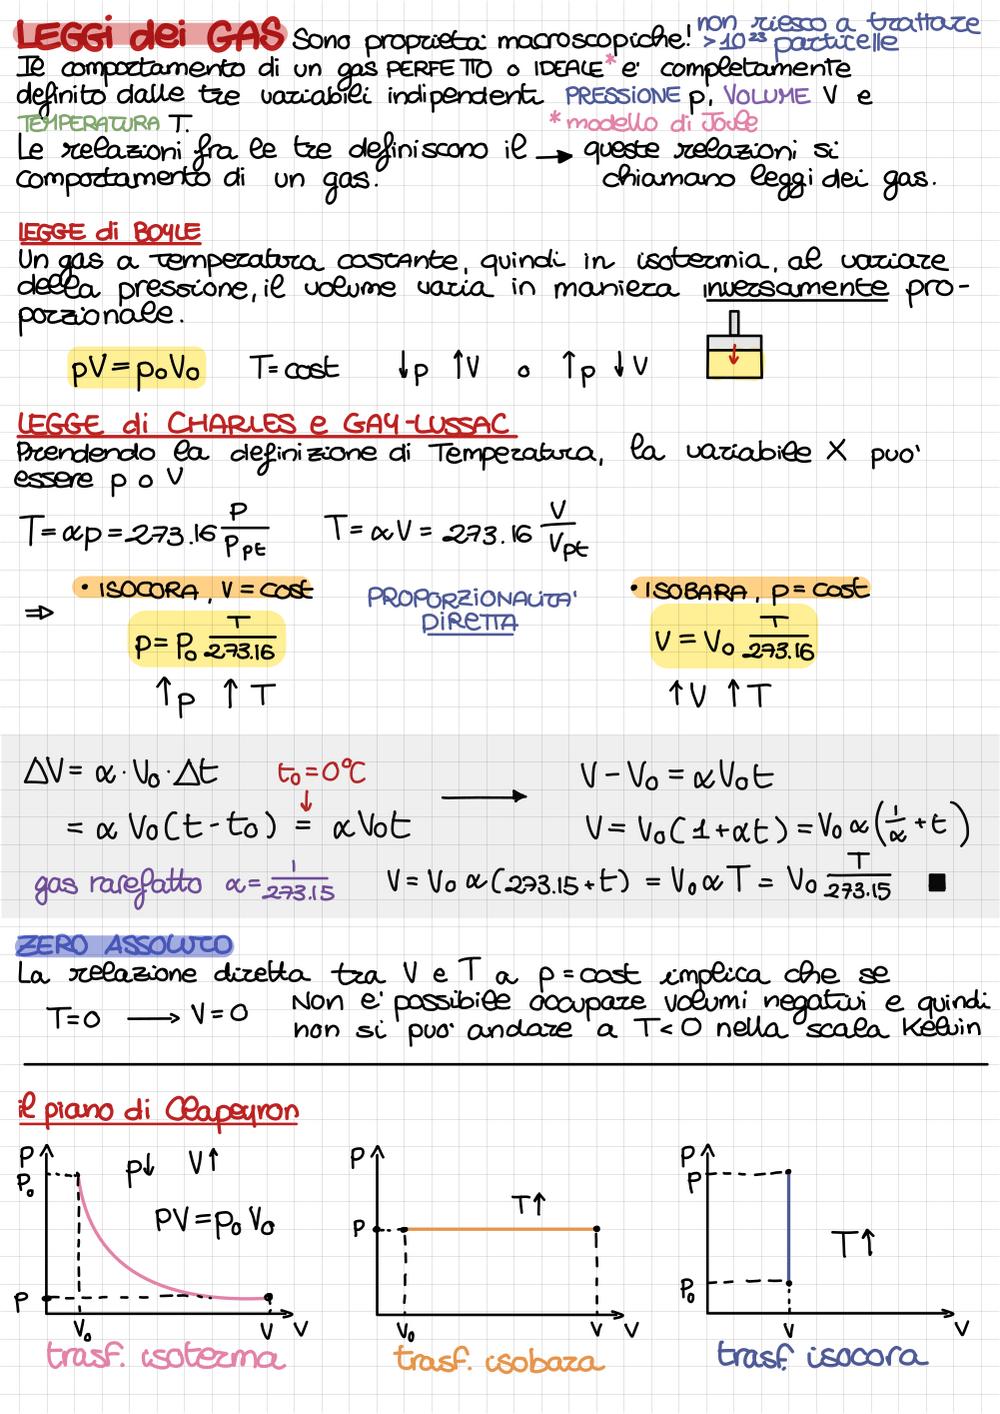 LEGGI dei GAS Sono proprietà macroscopiche! non riesco a trattare
> 10²³ particelle
Il comportamento di un gas PERFETTO o IDEALE* e' completamente
definito dalle tre variabili indipendenti PRESSIONE p, VOLUME V e
TEMPERATURA T. *modello di Joule
Le relazioni fra le tre definiscono il → queste relazioni si
comportamento di un gas. chiamano leggi dei gas.
LEGGE di BOYLE
Un gas a temperatura costante, quindi in isotermia, al variare
della pressione, il volume varia in maniera inversamente pro-
porzionale.
pV = p₀V₀ T = cost ↓p ↑V o ↑p ↓V
LEGGE di CHARLES e GAY-LUSSAC
Prendendo la definizione di Temperatura, la variabile X puo'
essere p o V
T = αp = 273.16 P/Ppt T = αV = 273.16 V/Vpt
⇒ • ISOCORA, V = cost PROPORZIONALITA' DIRETTA • ISOBARA, p = cost
p = P₀ T/273.16 V = V₀ T/273.16
↑p ↑T ↑V ↑T
ΔV = α · V₀ · Δt t₀ = 0°C → V - V₀ = αV₀t
= α V₀ (t - t₀) = αV₀t V = V₀ (1 + αt) = V₀ α (1/α + t)
gas rarefatto α = 1/273.15 V = V₀ α (273.15 + t) = V₀ α T = V₀ T/273.15 ■
ZERO ASSOLUTO
La relazione diretta tra V e T a p = cost implica che se
T = 0 → V = 0 Non e' possibile occupare volumi negativi e quindi
non si puo' andare a T < 0 nella scala Kelvin
il piano di Clapeyron
P P₀ p↓ V↑ PV = p₀V₀ P V₀ V V
P P T↑ V₀ V V
P P T↑ P₀ V V
trasf. isoterma trasf. isobara trasf. isocora